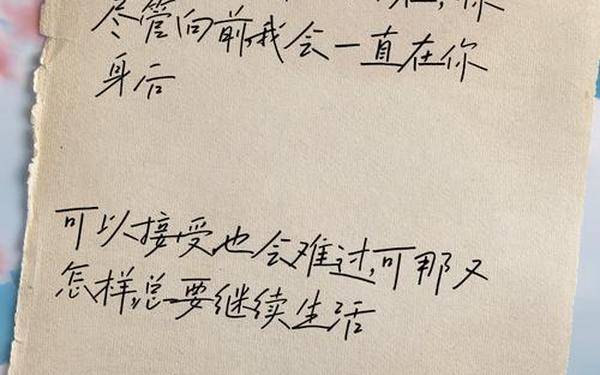 你
尽管向前,我会一直在你
身后
可以接受,也会难过,可那又
怎样,总要继续生活